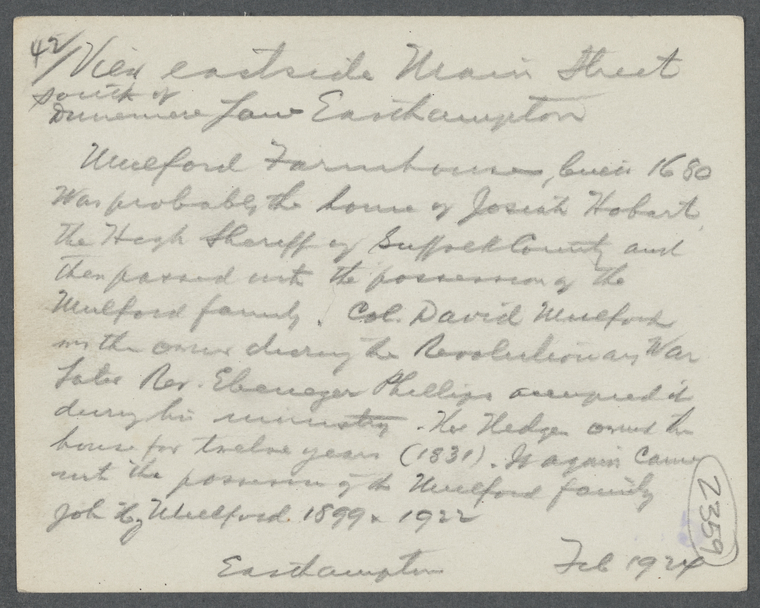 42/ View eastside Main Street
south of
Dunemere Lane Easthampton
Mulford Farmhouse, built 1680
Was probably the home of Josiah Hobart,
the High Sheriff of Suffolk County and
then passed into the possession of the
Mulford family. Col. David Mulford
was the owner during the Revolutionary War
Later Rev. Ebenezer Phillips occupied it
during his ministry. Hedges owned the
house for twelve years (1831). It again came
into the possession of the Mulford family
John H. Mulford 1899 1922
Easthampton Feb 1924
2359